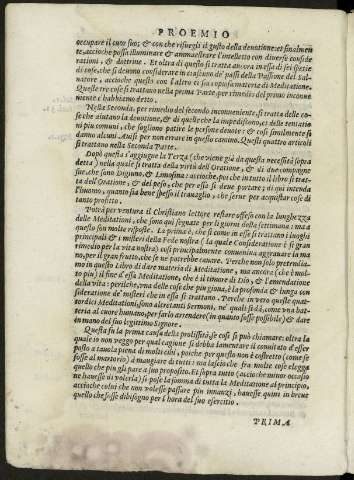 PROEMIO
occupare il cuor suo; & con che risuegli il gusto della deuotione: et finalmen
te, accioche possa illuminare & ammaestrare l'intelletto con diuerse conside
rationi, & dottrine. Et oltra di questo si tratta ancora in essa di sei spetie
di cose, che si deueno considerare in ciascuno de' passi della Passione del Sal-
uatore, accioche questo con l'altro ci dia copiosa materia di Meditatione.
Queste tre cose si trattano nella prima Parte, per rimedio del primo inconue
niente c'habbiamo detto.
Nella Seconda, per rimedio del secondo inconueniente, si tratta delle co-
se che aiutano la deuotione, & di quelle che la impediscono, et delle tentatio
ni piu comuni, che sogliono patire le persone deuote: & cosi finalmente si
danno alcuni Auisi per non errare in questo camino. Questi quattro articoli
si trattano nella Seconda Parte.
Dopò questa s'aggiugne la Terza (che viene già da questa necessità sopra
detta) nella quale si tratta della virtù dell'Oratione, & di due compagne
sue, che sono Digiuno, & Limosina: accioche, poi che in tutto il libro si trat-
ta dell'Oratione, & del peso, che per essa si deue portare; di qui intenda
l'huomo, quanto sia bene speso il trauaglio, che serue per acquistar cose di
tanto profitto.
Potrà per ventura il Christiano lettore restare offeso con la lunghezza
delle Meditationi, che sono qui segnate per li giorni della settimana: ma a
questo son molte risposte. La prima è, che si come in esse si trattano i luoghi
principali & i misteri della Fede nostra (la quale Consideratione è si gran
rimedio per la vita nostra) così principalmente conueniua aggranare la ma
no, per il gran frutto, che se ne potrebbe cauare. Perche non solo pretendia-
mo in questo Libro di dare materia di Meditatione, ma ancora (che è mol-
to piu) il fine d'essa Meditatione, che è il timore di Dio, & l'emendatione
della vita: perilche, vna delle cose che piu gioua, è la profonda & lunga con
sideratione de' misteri che in essa si trattano. Perche in vero queste quat-
tordici Meditationi, sono altretanti Sermoni, ne' quali si dà, come vna bat-
teria al cuore humano, per farlo arrendere (in quanto fosse possibile) & dare
in mano del suo legittimo Signore.
Questa fu la prima causa della prolissità, se così si può chiamare: oltra la
quale io non veggo per qual cagione si debba lamentare il conuitato d'esser
posto a tauola piena di molti cibi, poiche per questo non è costretto (come se
fosse al martorio) à mangiare di tutti: ma lascioche fra molte cose elegga
quello che piu gli pare a suo proposito. Et sopra tutto (accioche minor occasio
ne hauesse di volerla) si pose la somma di tutta la Meditatione al principio,
accioche colui che non volesse passare piu innanzi, hauesse quiui in breue
quello che fosse dibisogno per l'hora del suo esercitio.
PRIMA